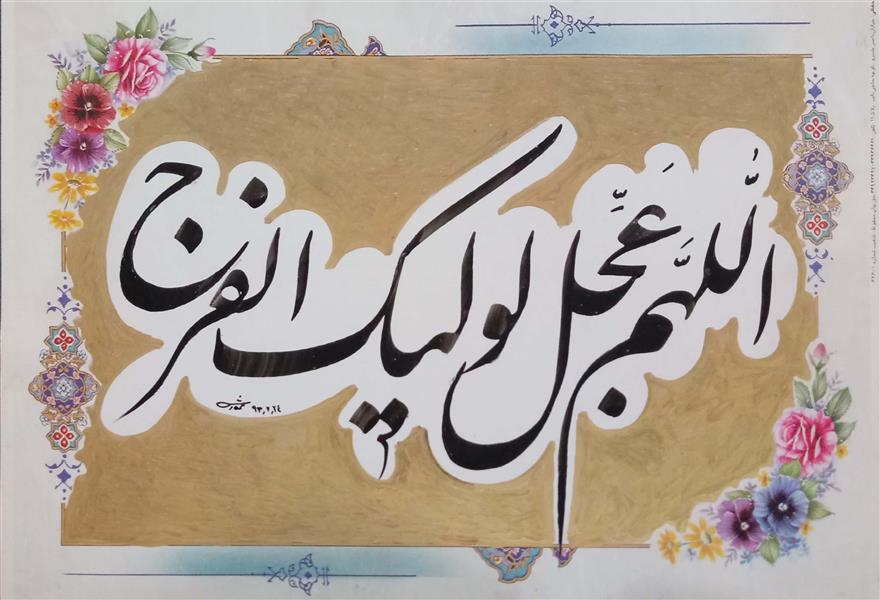 اللّٰهُمَّ عَجِّل لولیک الفرج
۹۳٫۲٫۲٤